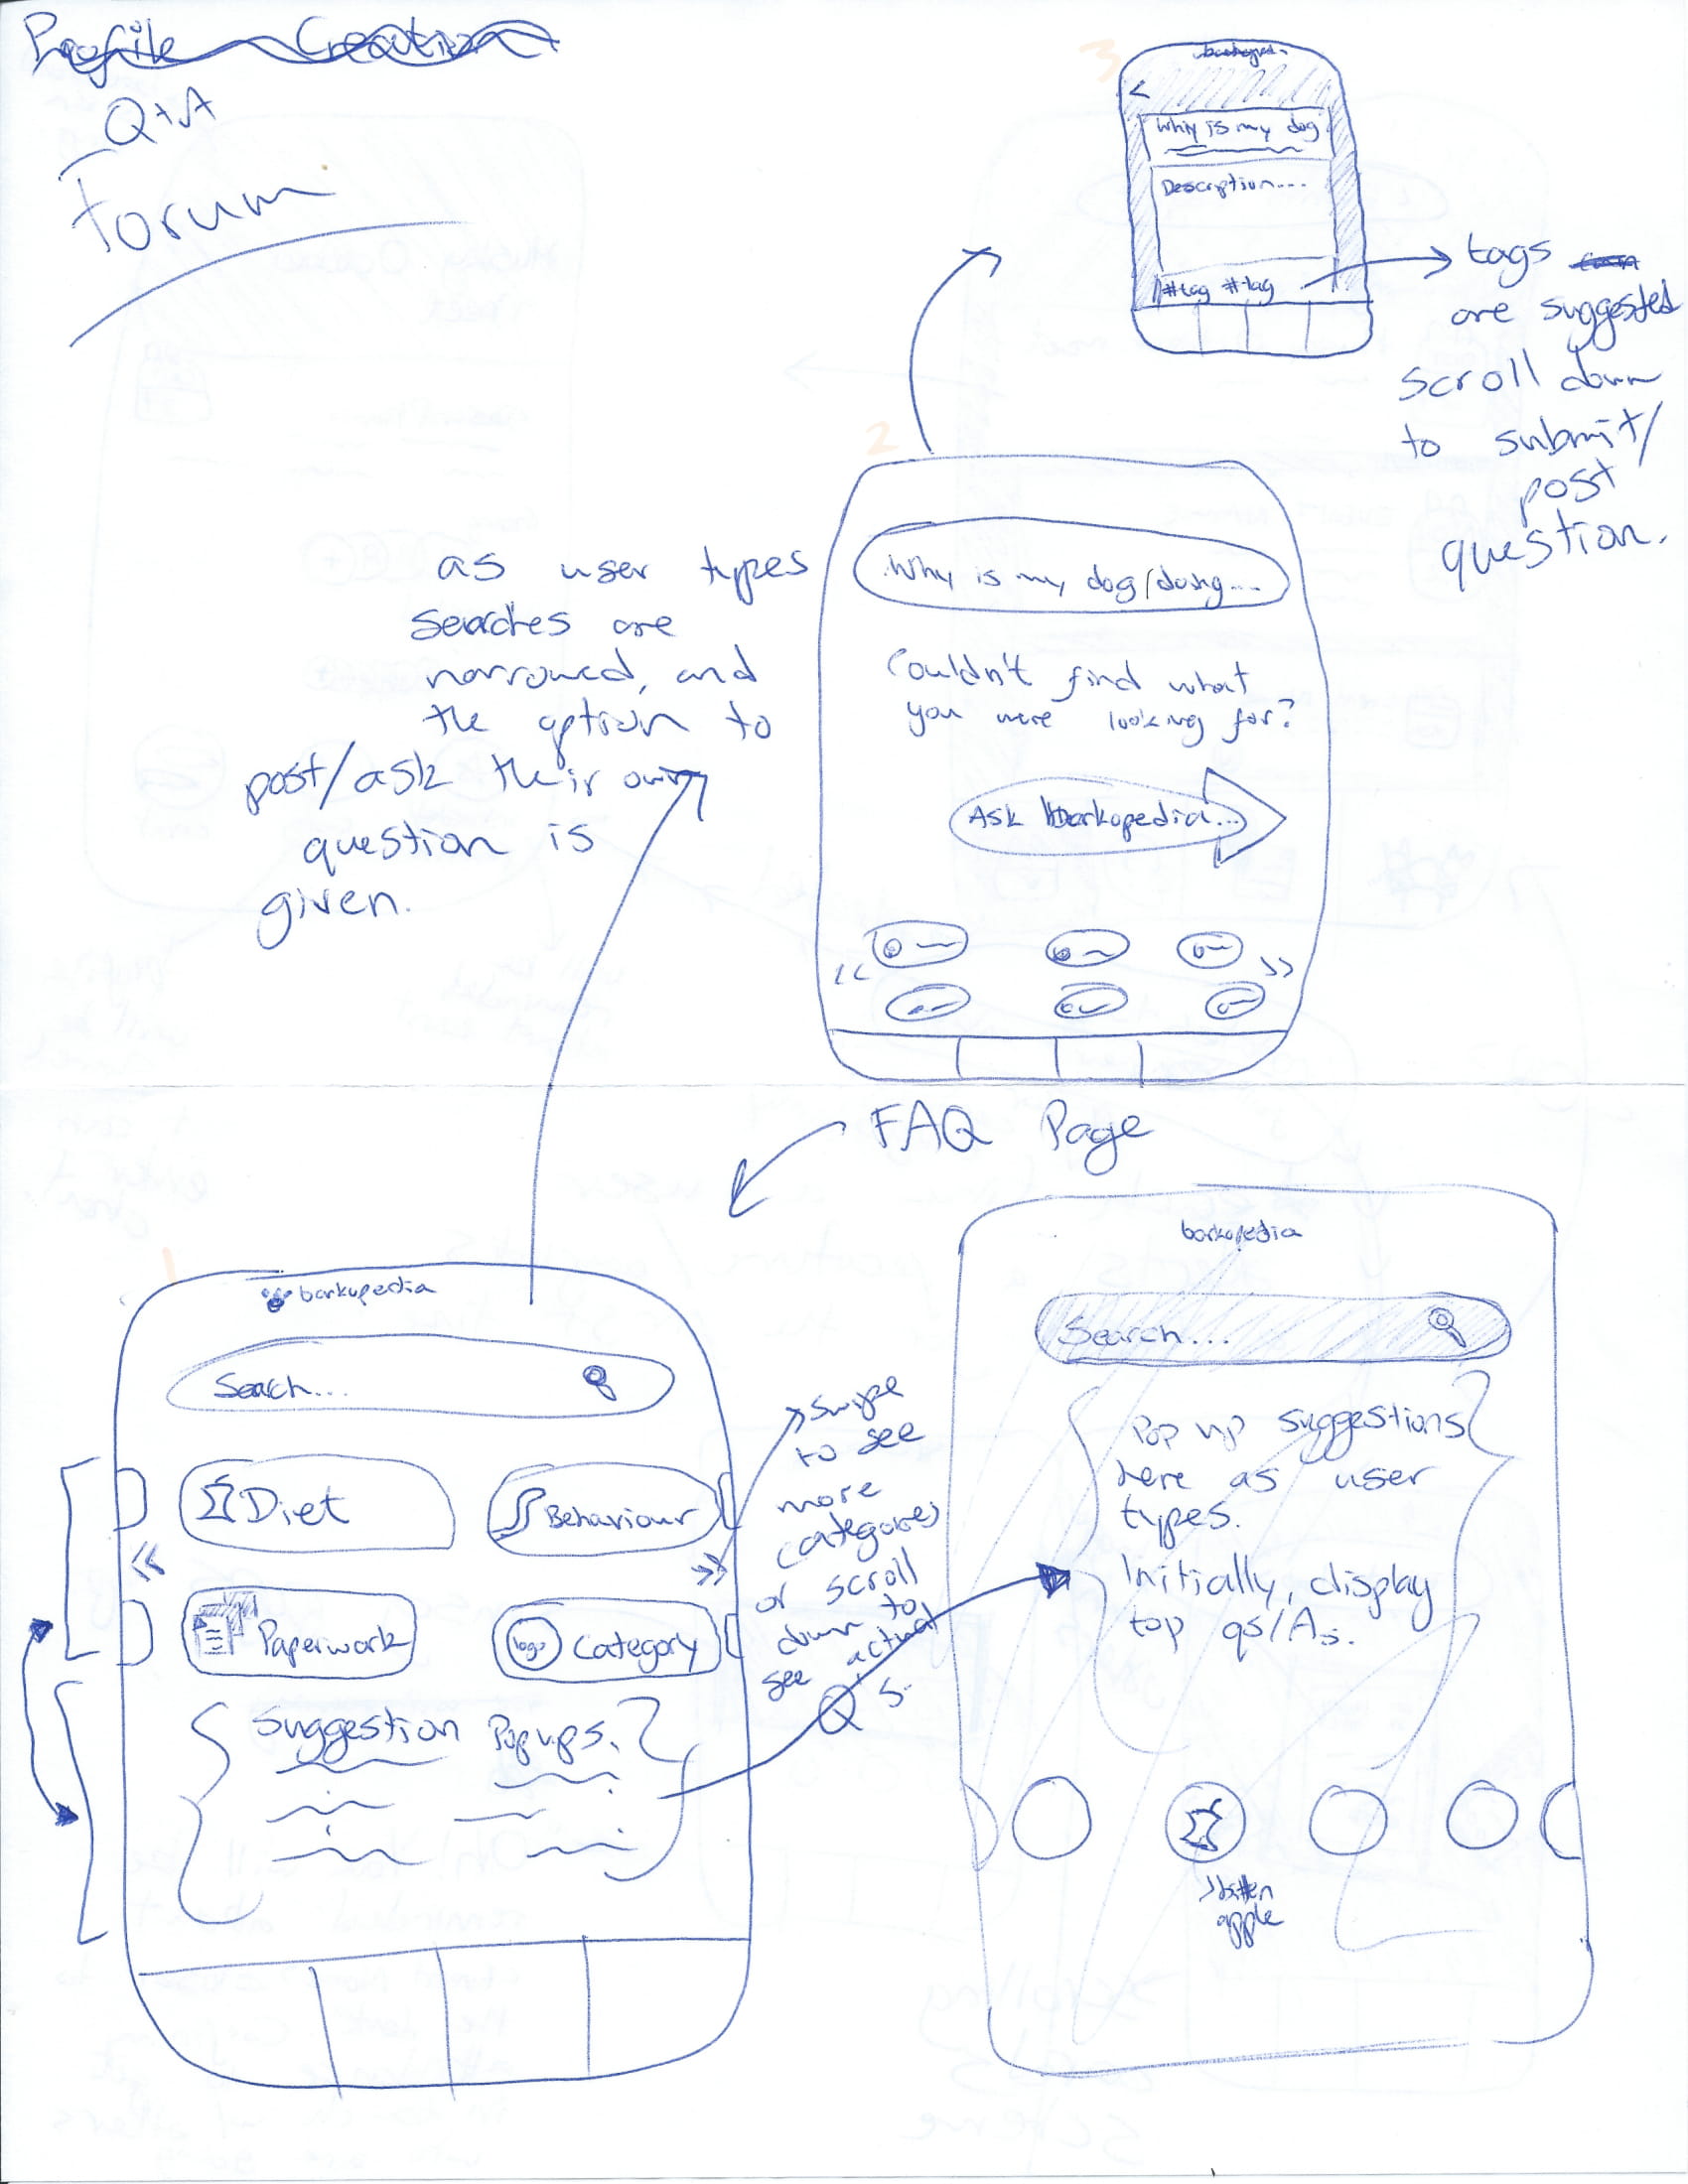 Profile Creation
Q+A
Forum
3
<
Why is my dog
Description...
#tag #tag
tags
are suggested
scroll down
to submit/
post
question.
2
Why is my dog/doing...
Couldn't find what
you were looking for?
Ask Barkopedia...
<< >>
as user types
searches are
narrowed, and
the option to
post/ask their own
question is
given.
FAQ Page
1
barkopedia
Search...
Diet
Behaviour
<< >>
Paperwork
logo Category
Suggestion Popups.
swipe
to see
more
categories
or scroll
down to
see actual
Qs.
barkopedia
Search...
Pop up suggestions
here as user
types.
Initially, display
top qs/As.
apple